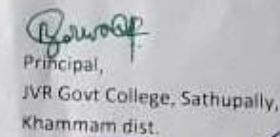 Principal,
JVR Govt College, Sathupally,
Khammam dist.